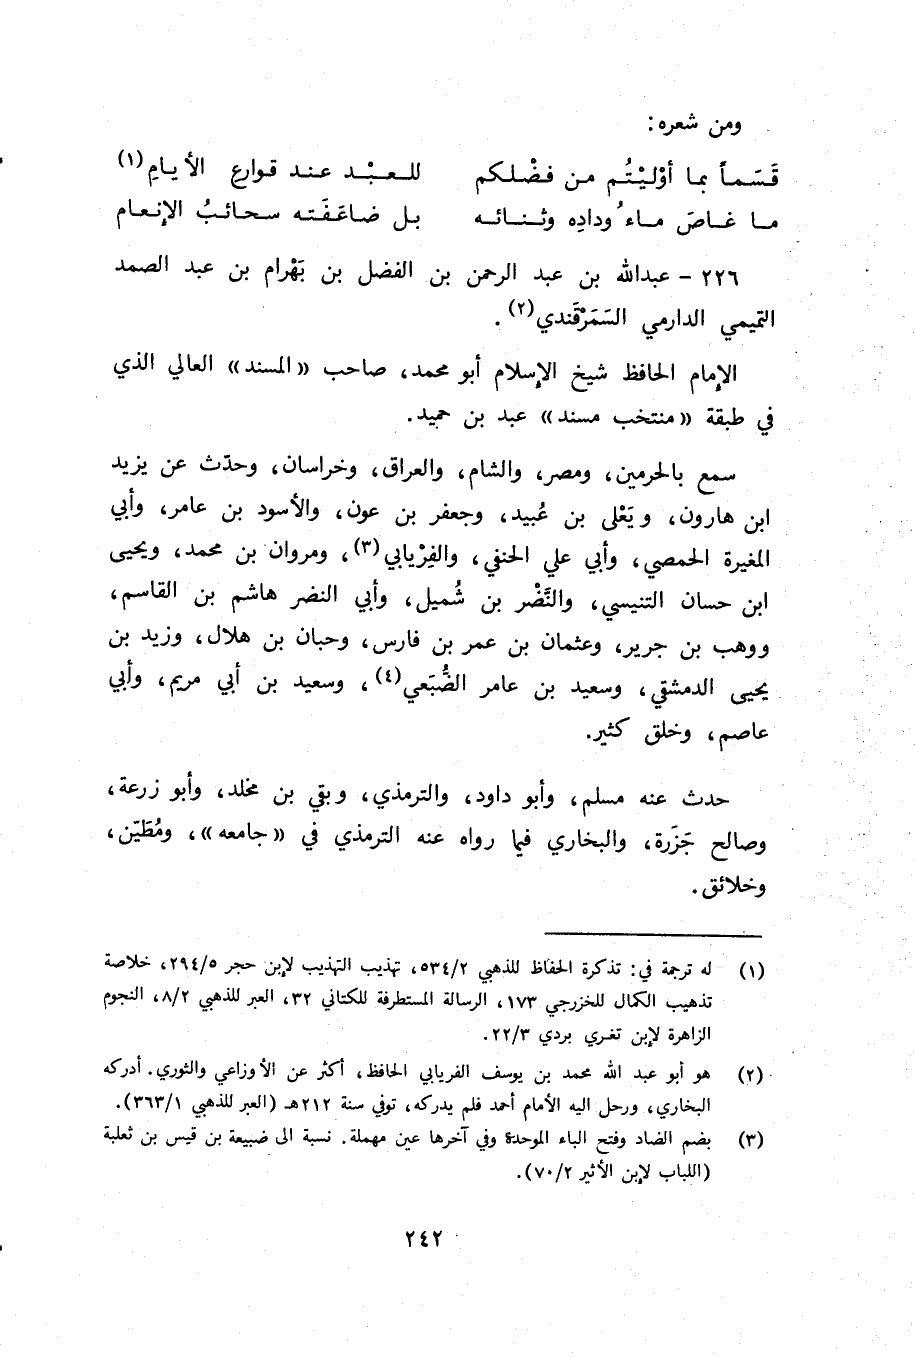 ومن شعره:
قَسَماً بما أوْليْتُم من فضْلكم للعبْد عند قوارع الأيامِ(١)
ما غاصَ ماءُ ودادِه وثنائه بل ضاعَفَته سحائبُ الإنعام
٢٢٦ - عبدالله بن عبد الرحمن بن الفضل بن بَهْرام بن عبد الصمد
التميمي الدارمي السَمَرْقندي(٢).
الإمام الحافظ شيخ الإسلام أبو محمد، صاحب «المسند» العالي الذي
في طبقة «منتخب مسند» عبد بن حميد.
سمع بالحرمين، ومصر، والشام، والعراق، وخراسان، وحدّث عن يزيد
ابن هارون، ويَعْلى بن عُبيد، وجعفر بن عون، والأسود بن عامر، وأبي
المغيرة الحمصي، وأبي علي الحنفي، والفِرْيابي(٣)، ومروان بن محمد، ويحيى
ابن حسان التنيسي، والنَّضْر بن شُميل، وأبي النضر هاشم بن القاسم،
ووهب بن جرير، وعثمان بن عمر بن فارس، وحبان بن هلال، وزيد بن
يحيى الدمشقي، وسعيد بن عامر الضُّبَعي(٤)، وسعيد بن أبي مريم، وأبي
عاصم، وخلق كثير.
حدث عنه مسلم، وأبو داود، والترمذي، وبقي بن مخلد، وأبو زرعة،
وصالح جَزَرة، والبخاري فيما رواه عنه الترمذي في «جامعه»، ومُطَيّن،
وخلائق.
(١) له ترجمة في: تذكرة الحفاظ للذهبي ٥٣٤/٢، تهذيب التهذيب لإبن حجر ٢٩٤/٥، خلاصة
تذهيب الكمال للخزرجي ١٧٣، الرسالة المستطرفة للكتاني ٣٢، العبر للذهبي ٨/٢، النجوم
الزاهرة لإبن تغري بردي ٢٢/٣.
(٢) هو أبو عبد الله محمد بن يوسف الفريابي الحافظ، أكثر عن الأوزاعي والثوري. أدركه
البخاري، ورحل اليه الأمام أحمد فلم يدركه، توفي سنة ٢١٢هـ (العبر للذهبي ٣٦٣/١).
(٣) بضم الضاد وفتح الباء الموحدة وفي آخرها عين مهملة. نسبة الى ضبيعة بن قيس بن ثعلبة
(اللباب لإبن الأثير ٧٠/٢).
٢٤٢